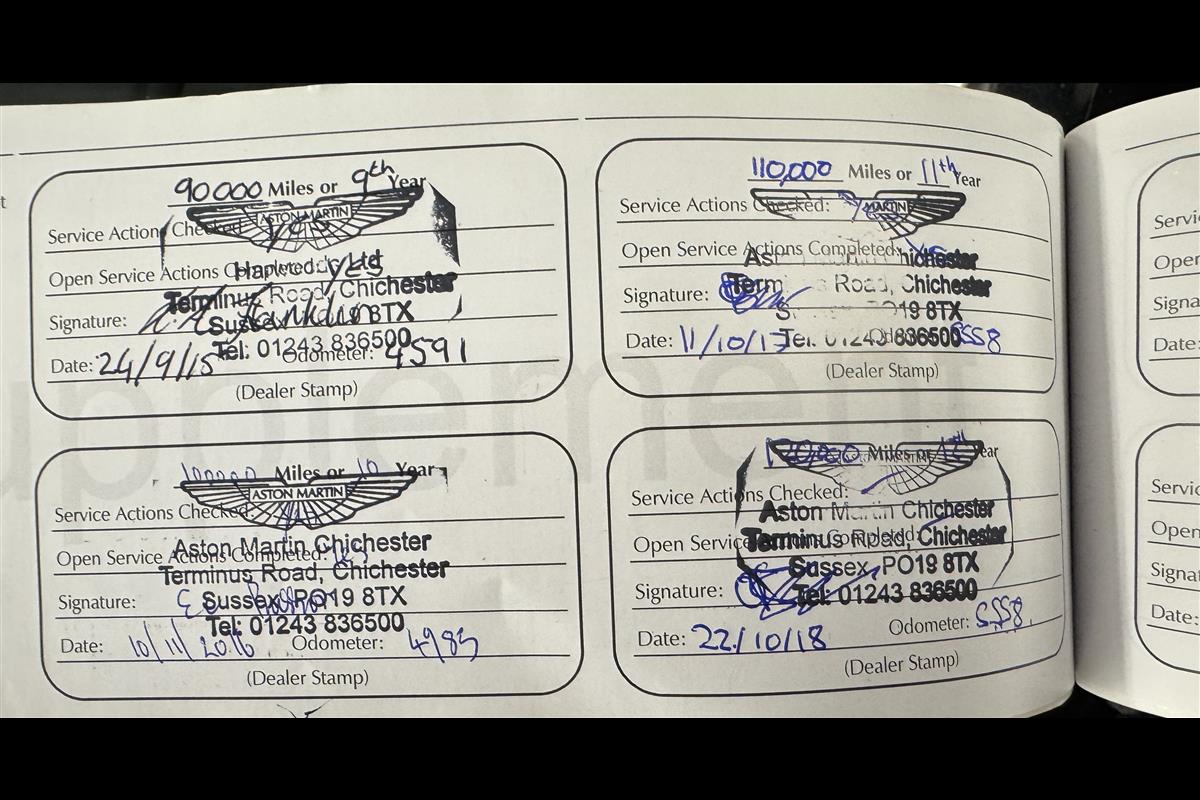 90000 Miles or 9th Year
ASTON MARTIN
Service Actions Checked: Yes
Open Service Actions Completed: Yes
Harwood Ltd
Terminus Road, Chichester
Signature:
Sussex PO19 8TX
Tel: 01243 836500
Date: 24/9/15 Odometer: 4591
(Dealer Stamp)
100000 Miles or 10 Year
ASTON MARTIN
Service Actions Checked:
Aston Martin Chichester
Open Service Actions Completed:
Terminus Road, Chichester
Signature:
Sussex, PO19 8TX
Tel: 01243 836500
Date: 10/11/2016 Odometer: 4983
(Dealer Stamp)
110,000 Miles or 11th Year
MARTIN
Service Actions Checked: Yes
Open Service Actions Completed: Yes
Chichester
Term Road, Chichester
Signature:
19 8TX
Tel: 01243 836500
Date: 11/10/17 Odometer: 5558
(Dealer Stamp)
120,000 Miles or 12th Year
Service Actions Checked:
Aston Martin Chichester
Open Service Actions Completed:
Terminus Road, Chichester
Sussex, PO19 8TX
Signature:
Tel: 01243 836500
Date: 22/10/18 Odometer: 5558
(Dealer Stamp)
Supplement
Servi
Open
Signa
Date:
Servic
Open
Signat
Date: